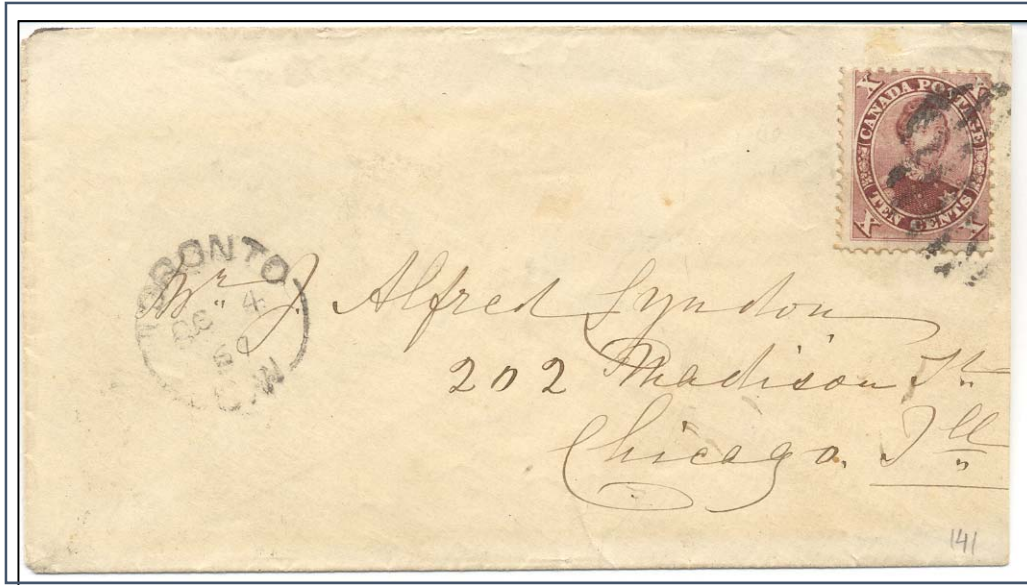 X X
CANADA POSTAGE
TEN CENTS
X X
TORONTO
4
C.W
Mr. J. Alfred Lyndon
202 Madison St
Chicago. Ill
141